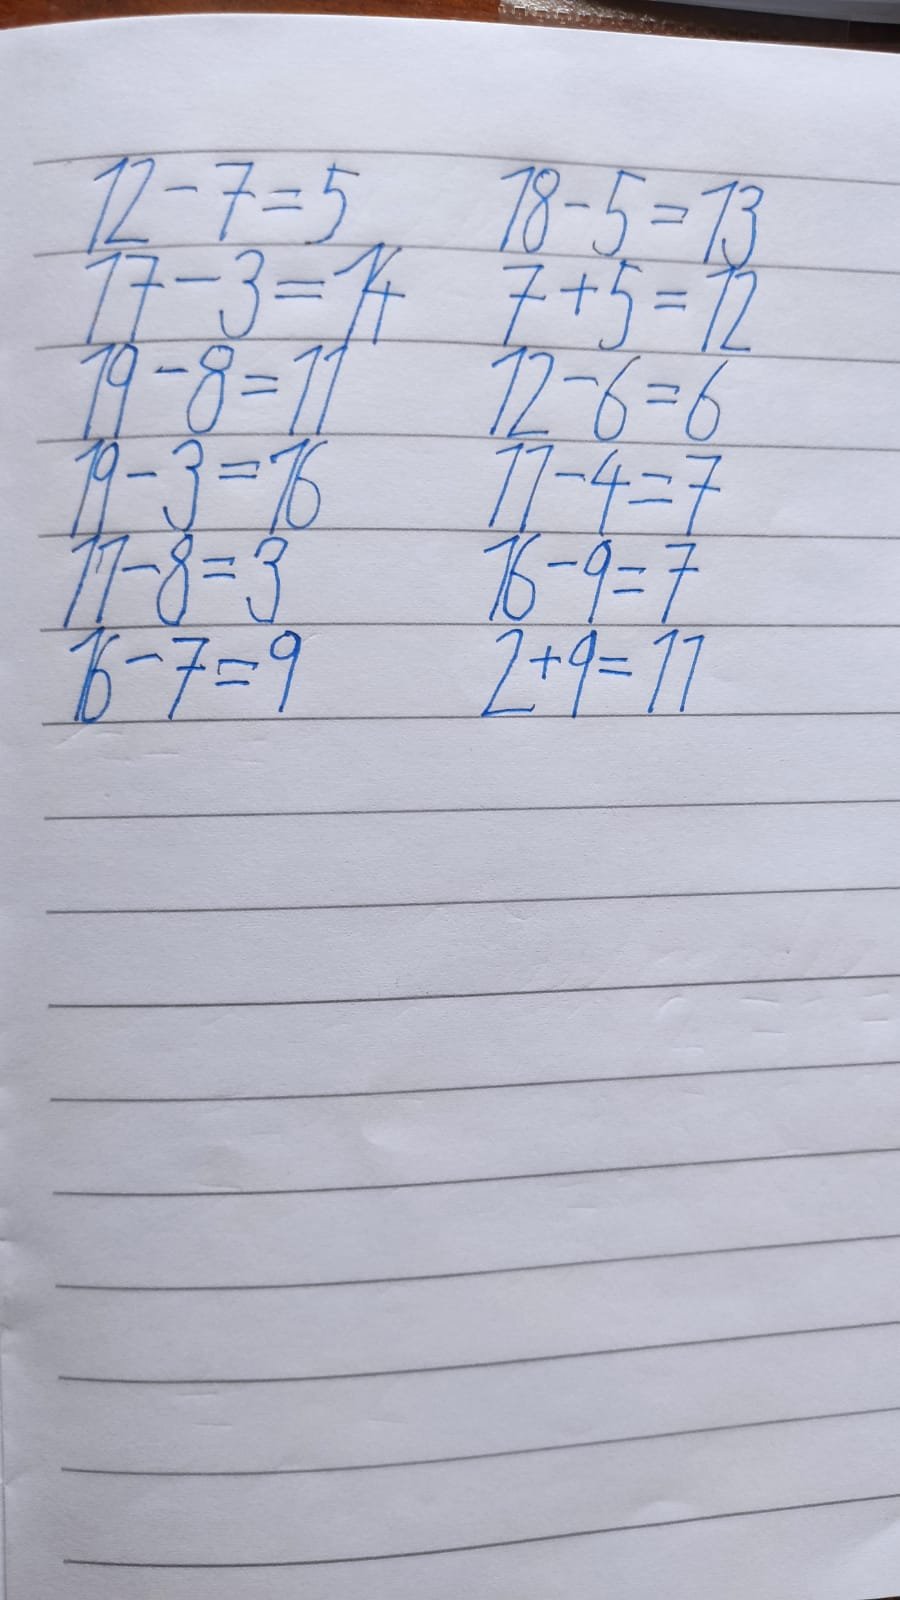 12-7=5 18-5=13
17-3=14 7+5=12
19-8=11 12-6=6
19-3=16 11-4=7
11-8=3 16-9=7
16-7=9 2+9=11